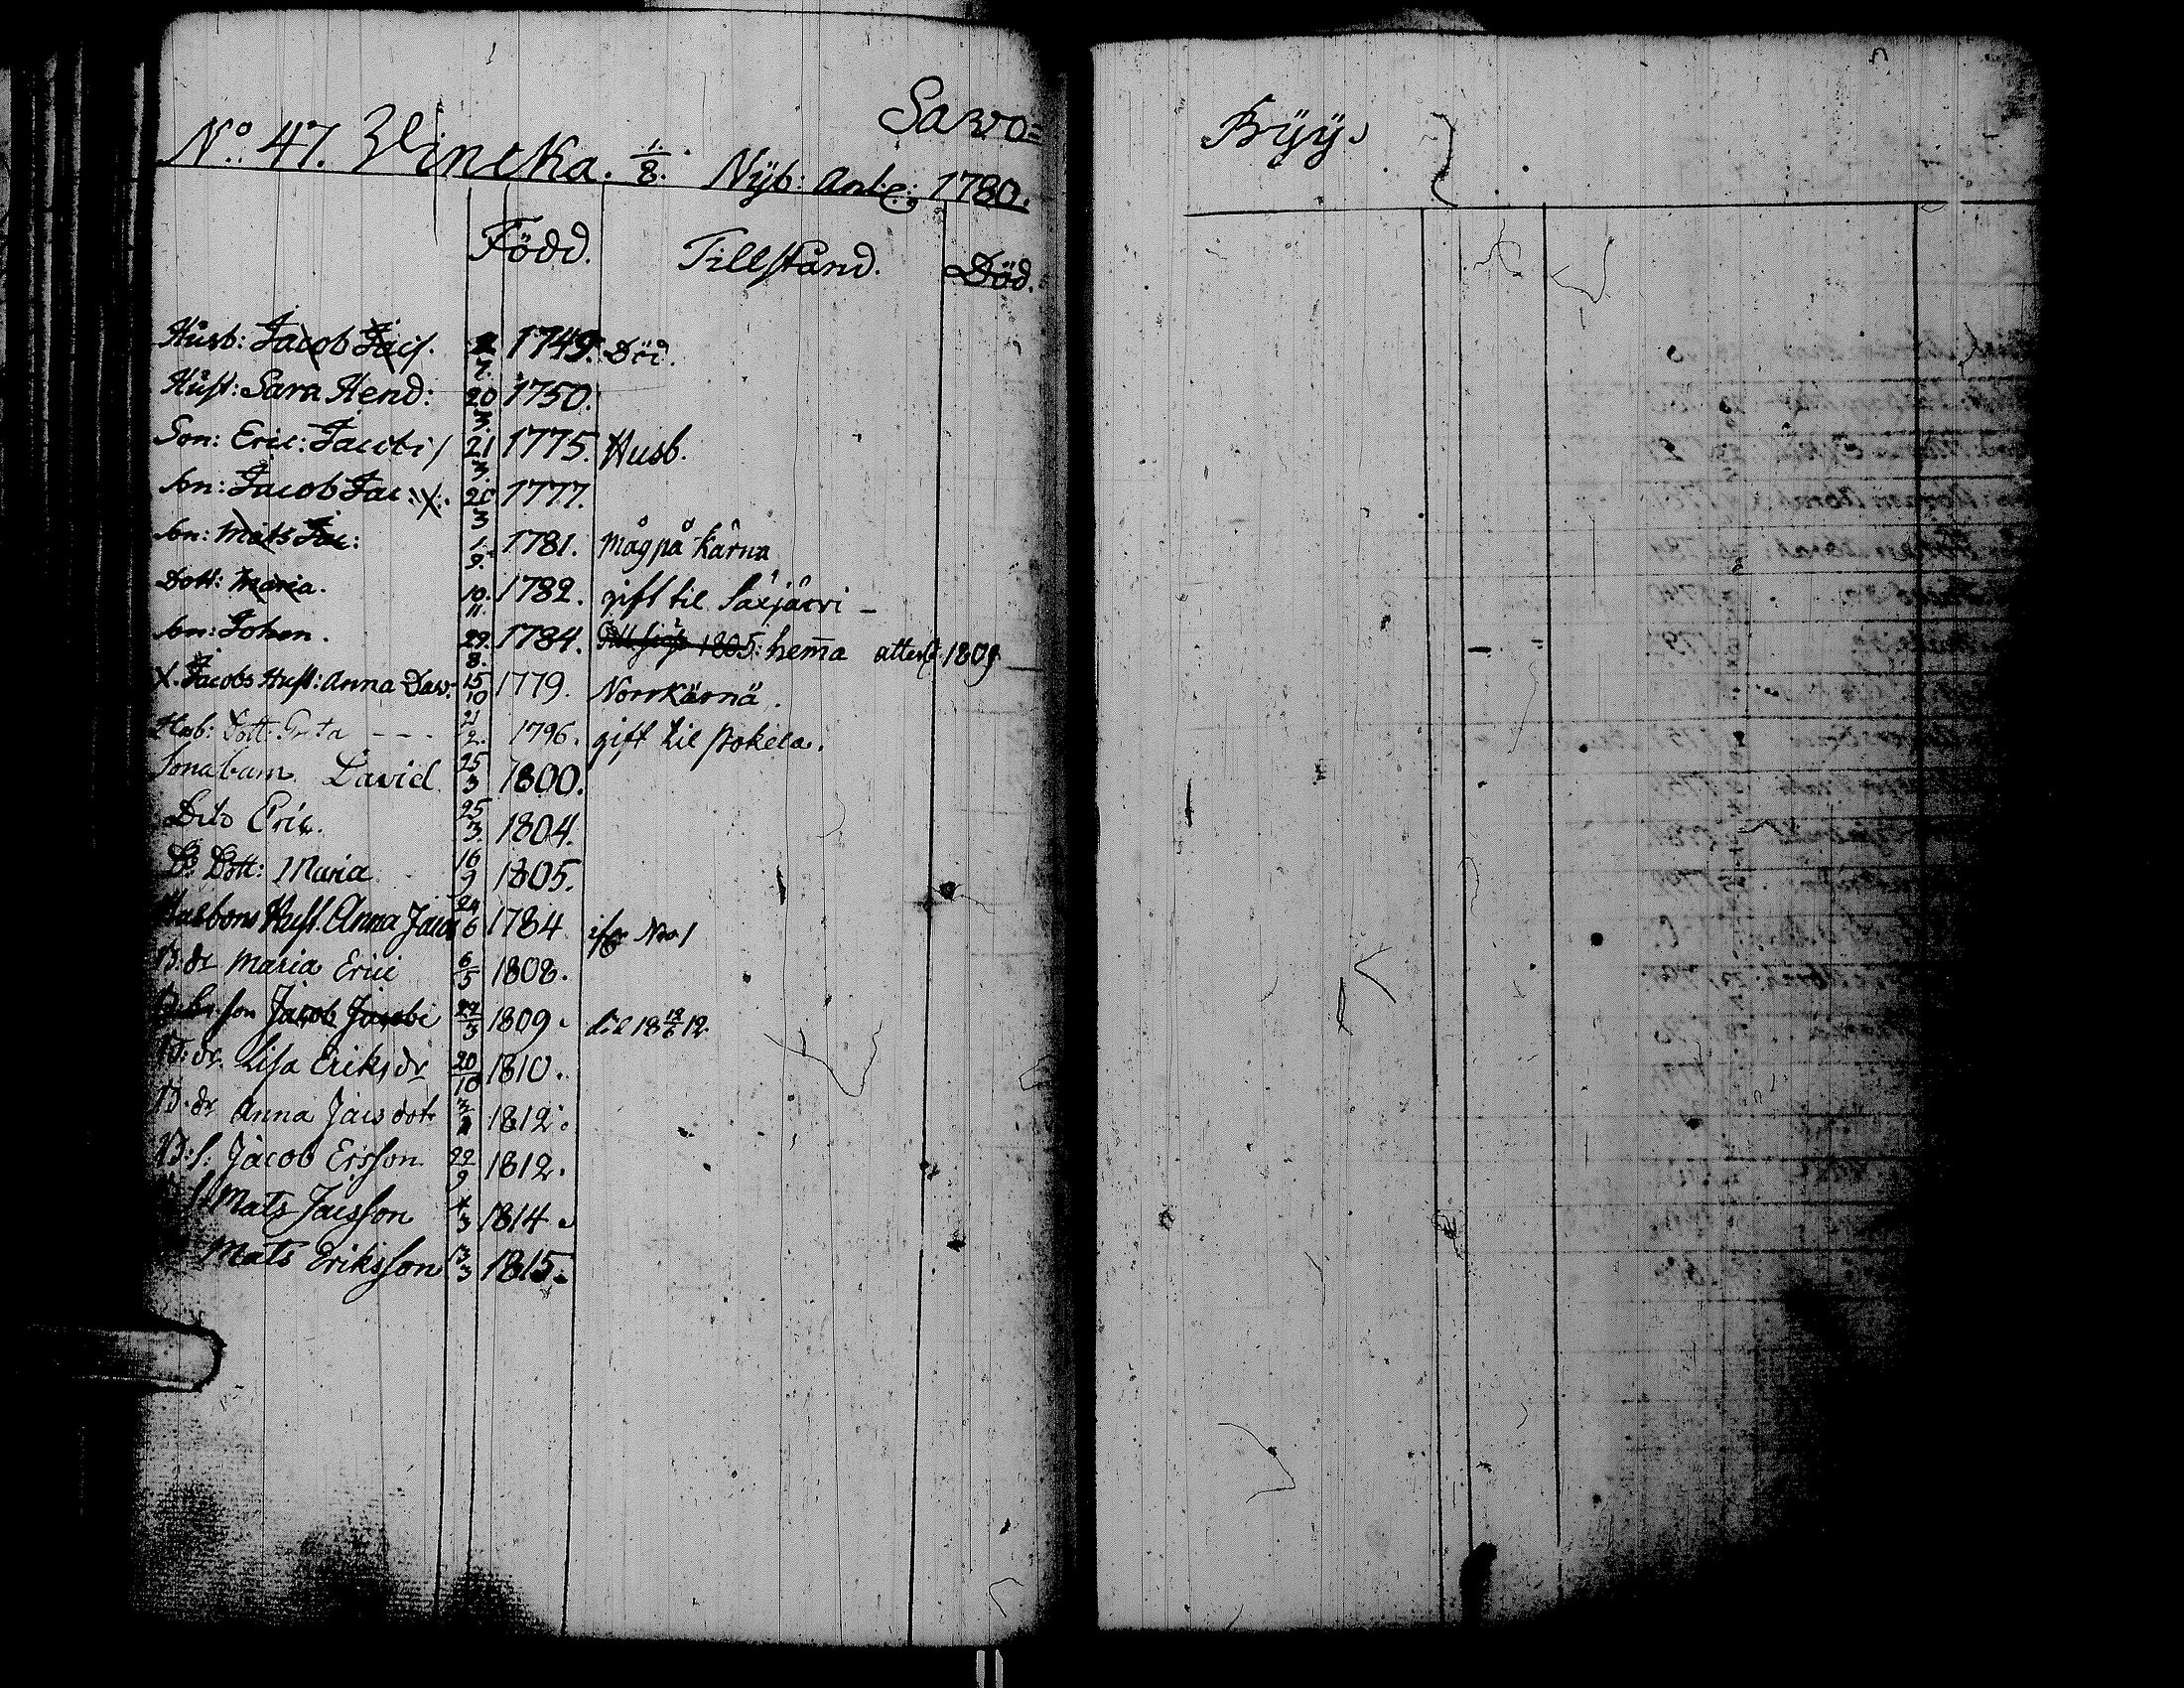 Sawo=
No: 47. Vincka. 1/8. Nyb: Anl: 1780.
Född. Tillstånd. Död.
Husb: Jacob Jacs. 2/7. 1749. Död.
Hust: Sara Hend: 20/3. 1750.
Son: Eric: Jacobi 21/3. 1775. Husb.
Son: Jacob Jac: X. 20/3 1777.
Son: Mats Jac: 1/9. 1781. Måg på Kärnä
Dott: Maria. 10/11. 1782. gift til Saxjäcri –
Son: Johan. 29./8. 1784. 1805: hem̄a 1809
X. Jacobs Hust: Anna Dav: 15/10 1779. Norrkärnä.
Husb: Dott: Greta – – – 21/2. 1796. gift til
Sonabarn David 25/3 1800.
Dito Eric. 25/3. 1804.
Do Dott: Maria 16/9 1805.
Husbons Hust. Anna Jacs 24/6 1784 ifr No 1
B: dr Maria Erici 6/5 1808.
son Jacob Jacobi 29/3 1809. död 18 12/6 12
B: dr. Lisa Eriksdr 20/10 1810.
B. dr Anna Jacsdot 3/2 1812.
B: s: Jacob Ersson 22/9 1812.
S. Mats Jacsson 4/3 1814
Mats Eriksson 13/3 1815.
Bÿÿ